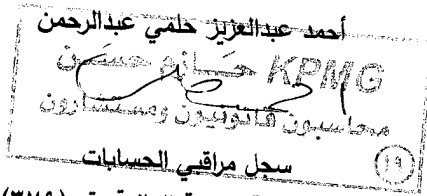 أحمد عبدالعزيز حلمي عبدالرحمن
KPMG حازم حسن
محاسبون قانونيون ومستشارون
سجل مراقبي الحسابات
(١٩)